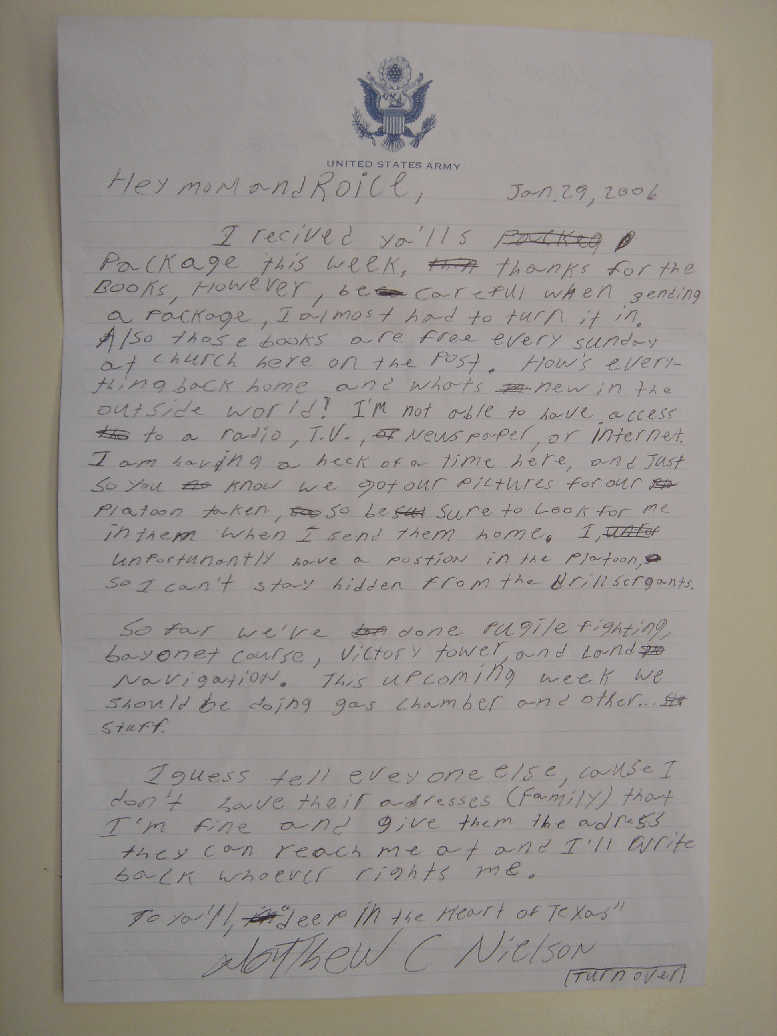 UNITED STATES ARMY
Hey mom and Roice,
Jan. 29, 2006
I recived ya'lls
Package this week, thanks for the
Books, However, be careful when sending
a package, I almost had to turn it in.
Also those books are free every sunday
at church here on the Post. How's every-
thing back home and whats new in the
outside world? I'm not able to have access
to a radio, T.V., Newspaper, or internet.
I am having a heck of a time here, and Just
so you know we got our pictures for our
Platoon taken, so be sure to Look for me
in them when I send them home. I,
unfortunantly have a postion in the Platoon,
so I can't stay hidden from the Drill sergants.
So far we've done pugile fighting,
bayonet course, Victory tower, and Land
Navigation. This upcoming week we
should be doing gas chamber and other...
stuff.
I guess tell eveyone else, cause I
don't have their adresses (family) that
I'm fine and give them the adress
they can reach me at and I'll write
back whoever rights me.
To ya'll, "deep in the Heart of Texas"
Matthew C Nielson
(Turn over)